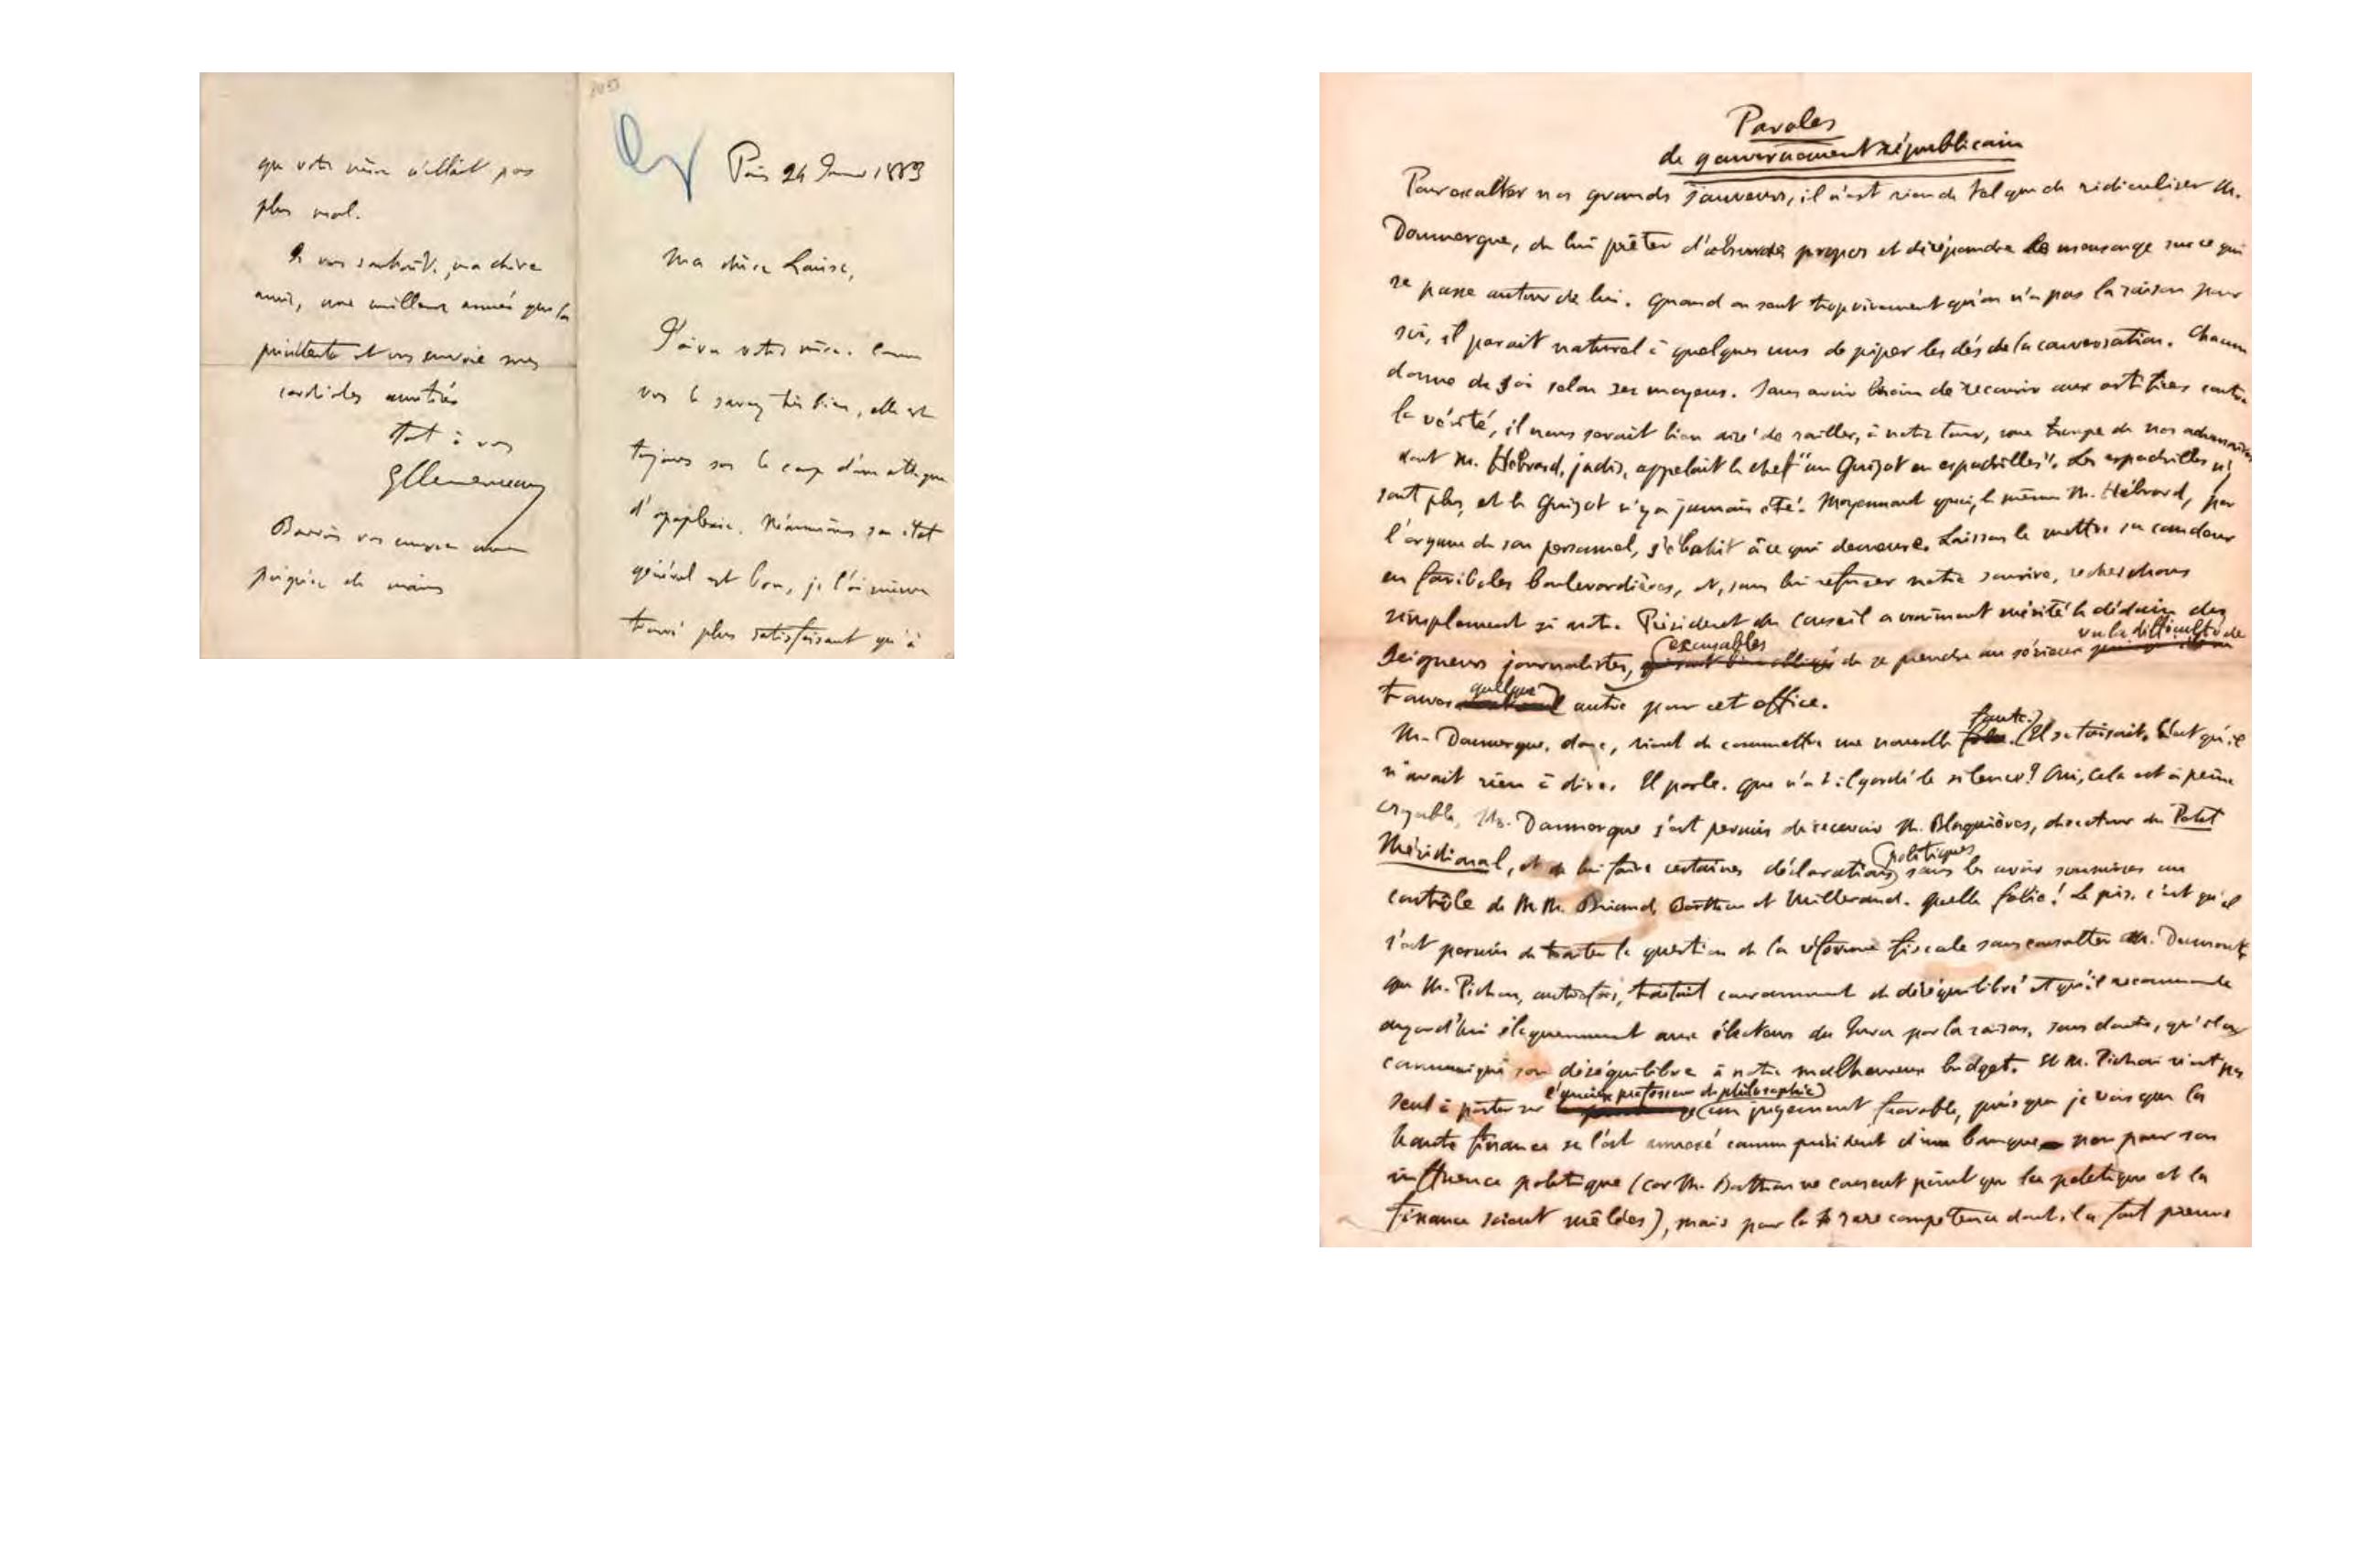 que votre mère n'allait pas
plus mal.
Je vous souhaite, ma chère
amie, une meilleure année que la
précédente et vous envoie mes
cordiales amitiés
Tout à vous
GClemenceau
vous envoie une
poignée de mains
Paris 24 1883
Ma chère Louise,
J'ai vu votre mère. Comme
vous le savez très bien, elle est
toujours sous le coup d'une attaque
d'apoplexie. Néanmoins son état
général est bon, je l'ai même
trouvé plus satisfaisant qu'à
Paroles
de gouvernement républicain
Pour exalter nos grands sauveurs, il n'est rien de tel que de ridiculiser M.
Doumergue, de lui prêter d'absurdes propos et de répandre le mensonge sur ce qui
se passe autour de lui. Quand on sent trop vivement qu'on n'a pas la raison pour
soi, il parait naturel à quelques uns de piper les dés de la conversation. Chacun
donne de soi selon ses moyens. Sans avoir besoin de recourir aux artifices contre
la vérité, il nous serait bien aisé de railler, à notre tour, une troupe de nos adversaires
dont M. Hébrard, jadis, appelait le chef "un Guizot en espadrilles". Les espadrilles n'y
sont plus, et le Guizot n'y a jamais été. Moyennant quoi, le même M. Hébrard, par
l'organe de son personnel, s'ébahit à ce qui demeure. Laissons le mettre sa candeur
en fariboles boulevardières, et, sans lui refuser notre sourire, recherchons
simplement si notre Président du Conseil a vraiment mérité le dédain des
Seigneurs journalistes, excusables de se prendre au sérieux vu la difficulté de
trouver quelque autre pour cet office.
M. Doumergue, donc, vient de commettre une nouvelle faute. Il se taisait. C'est qu'il
n'avait rien à dire. Il parle. Que n'a t-il gardé le silence? Oui, cela est à peine
croyable, M. Doumergue s'est permis de recevoir M. Blaquières, directeur du Petit
Méridional, et de lui faire certaines déclarations politiques sans les avoir soumises au
contrôle de MM. Briand, Barthou et Millerand. Quelle folie! Le pis, c'est qu'il
s'est permis de traiter la question de la réforme fiscale sans consulter M. Dumont,
que M. Pichon, autrefois, traitait couramment de déséquilibré et qu'il recommande
aujourd'hui éloquemment aux électeurs du Jura par la raison, sans doute, qu'il a
communiqué son déséquilibre à notre malheureux budget. Et M. Pichon n'est pas
seul à porter sur l'ancien professeur de philosophie un jugement favorable, puisque je vois que la
haute finance se l'est annexé comme président d'une banque non pour son
influence politique (car M. Barthou ne consent point que la politique et la
finance soient mêlées), mais pour la rare compétence dont il a fait preuve